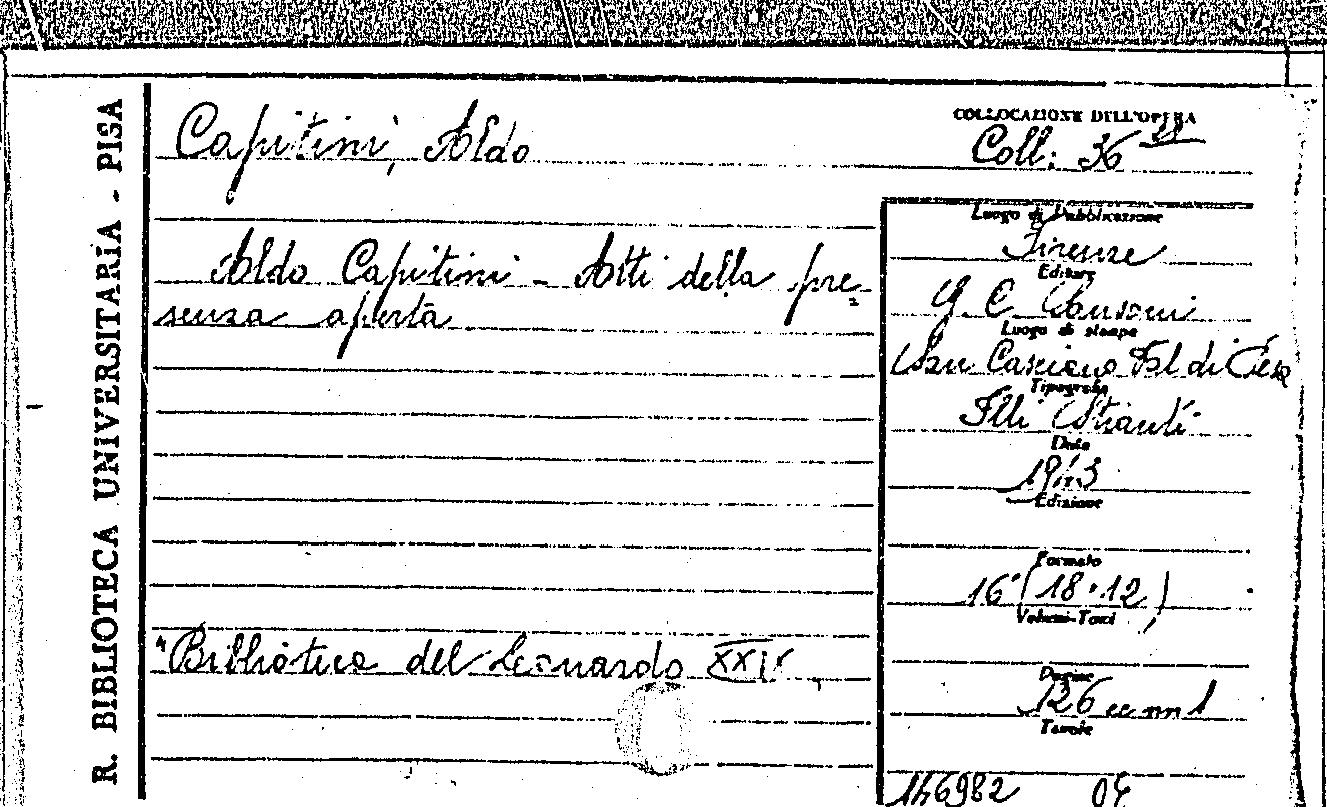 R. BIBLIOTECA UNIVERSITARIA - PISA
Capitini, Aldo
COLLOCAZIONE DELL'OPERA
Coll: 36
Aldo Capitini - Atti della pre=
senza aperta
Luogo di Pubblicazione
Firenze
Editore
G. C. Sansoni
Luogo di stampa
San Casciano Val di Pesa
Tipografia
F.lli Stianti
Data
1943
Edizione
Formato
16° (18·12)
Volumi-Tomi
"Biblioteca del Leonardo XXIV
Pagine
126 cc nn 1
Tavole
146982